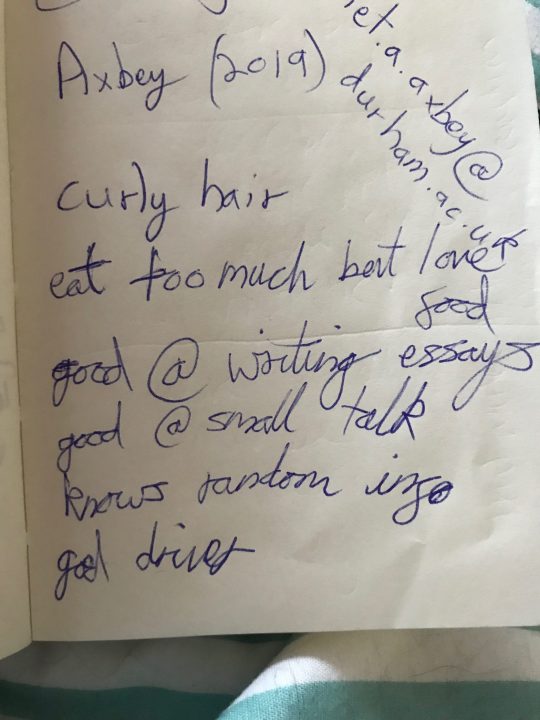 et.a.axbey@
durham.ac.uk
Axbey (2019)
curly hair
eat too much but love
food
good @ writing essays
good @ small talk
knows random info
good driver